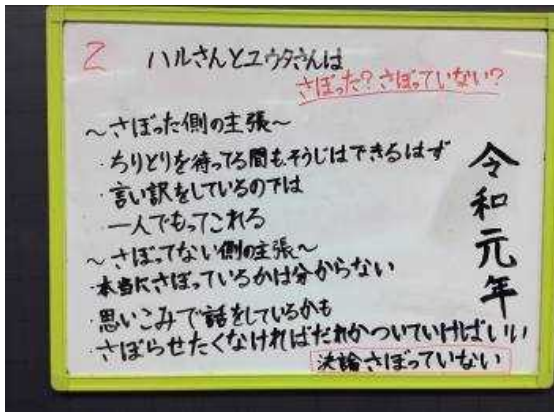 2 ハルさんとユウタさんは
さぼった?さぼっていない?
～さぼった側の主張～
・ちりとりを待ってる間もそうじはできるはず
・言い訳をしているのでは
・一人でもってこれる
～さぼってない側の主張～
・本当にさぼっているかは分からない
・思いこみで話をしているかも
・さぼらせたくなければだれかついていけばいい
決論さぼっていない
令和元年